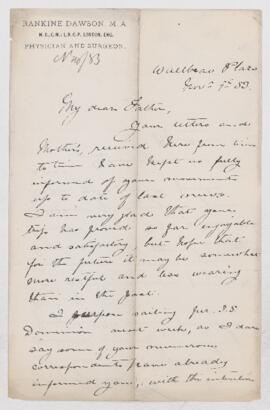 RANKINE DAWSON, M.A.
M.D., C.M.; L.R.C.P. LONDON, ENG.
PHYSICIAN AND SURGEON.
Nov 7/83
Wallbrae Place
Nov. 7th 83.
My dear Father,
Your letters and
Mother's, received here from time
to time have kept us fully
informed of your movements
up to date of last news.
I am very glad that your
trip has proved so far enjoyable
and satisfactory, but hope that
for the future it may be somewhat
more restful and less wearing
than in the past.
I purpose sailing per S.S
Dominion next week, as I dare
say some of your numerous
correspondents have already
informed you, with the intention